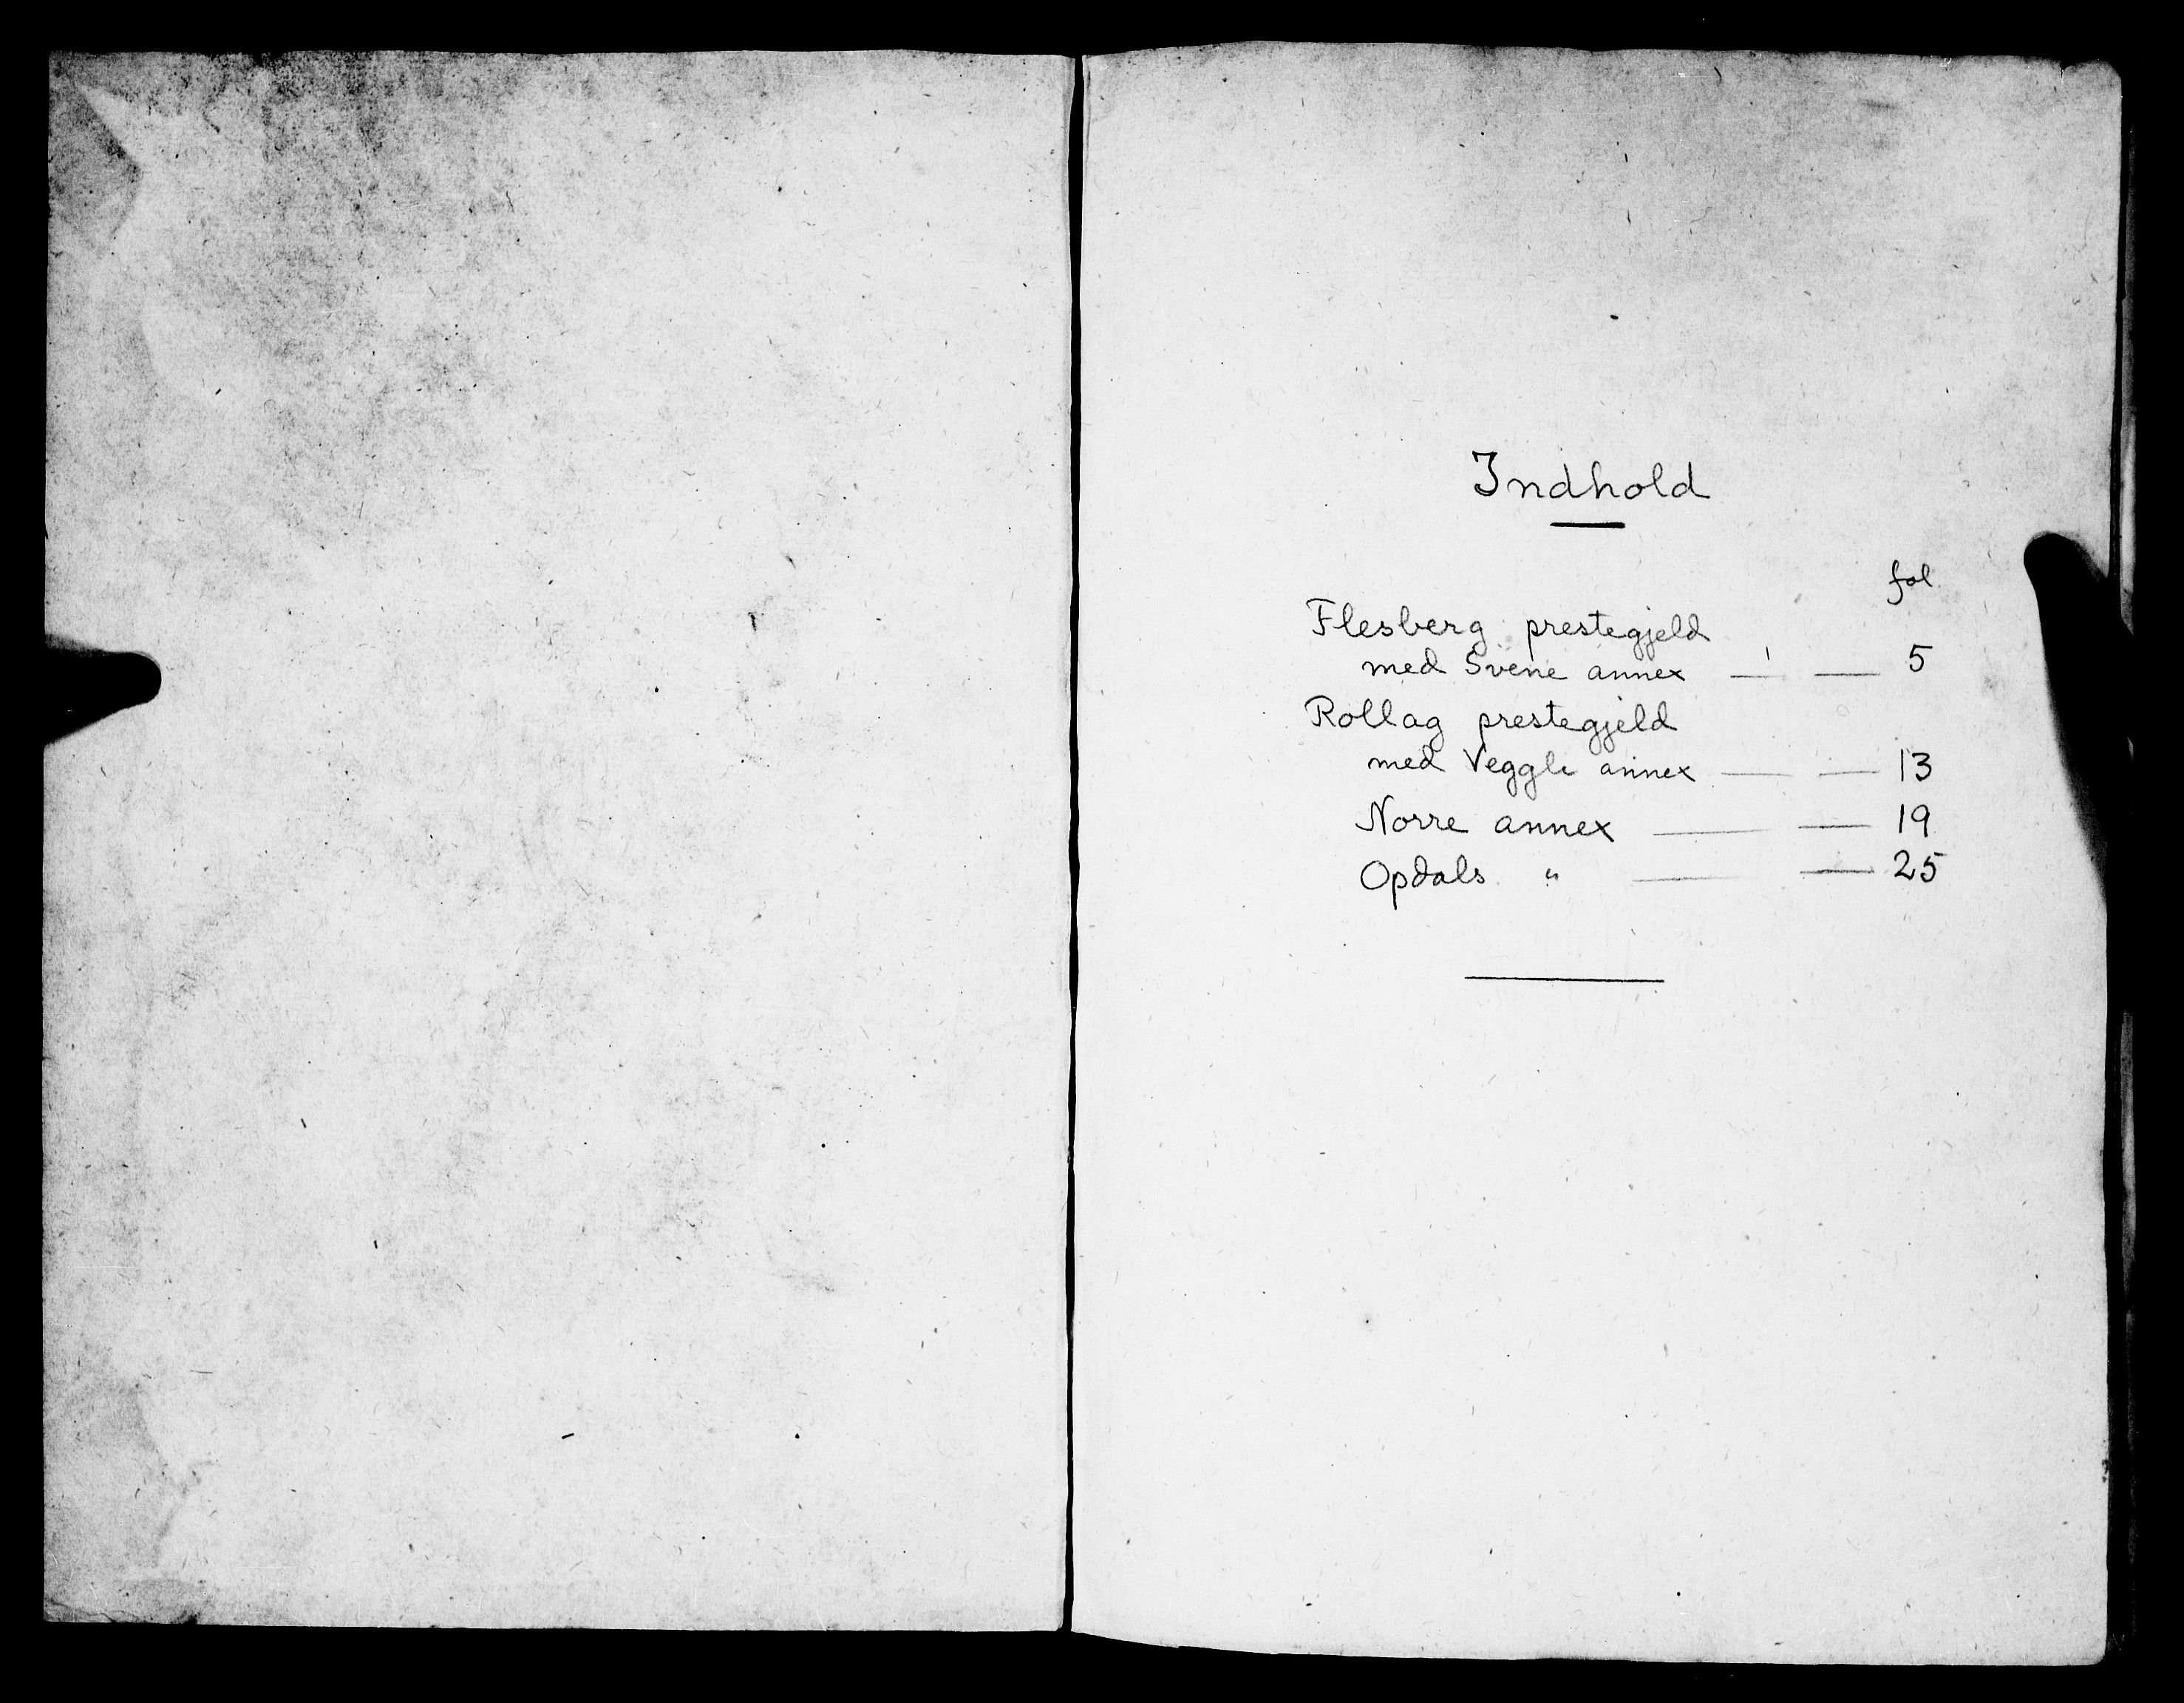 Indhold
fol
Flesberg prestegjeld
med Svene annex — — 5
Rollag prestegjeld
med Veggli annex — — 13
Norre annex — — 19
Opdals " — — 25